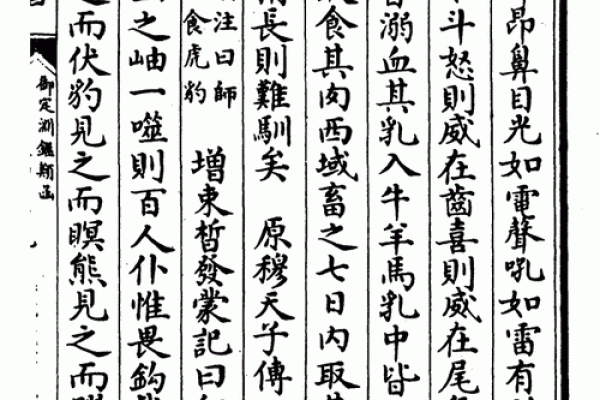 昂鼻目光如電聲吼如雷有
斗怒則威在齒喜則威在尾
溺血其乳入牛羊馬乳中皆
食其肉西域畜之七日內取其
長則難馴矣　原穆天子傳
注曰師
食虎豹
增東晳發蒙記曰
之岫一噬則百人仆惟畏鈎
之而伏豹見之而瞑熊見之而
御定淵鑑類函